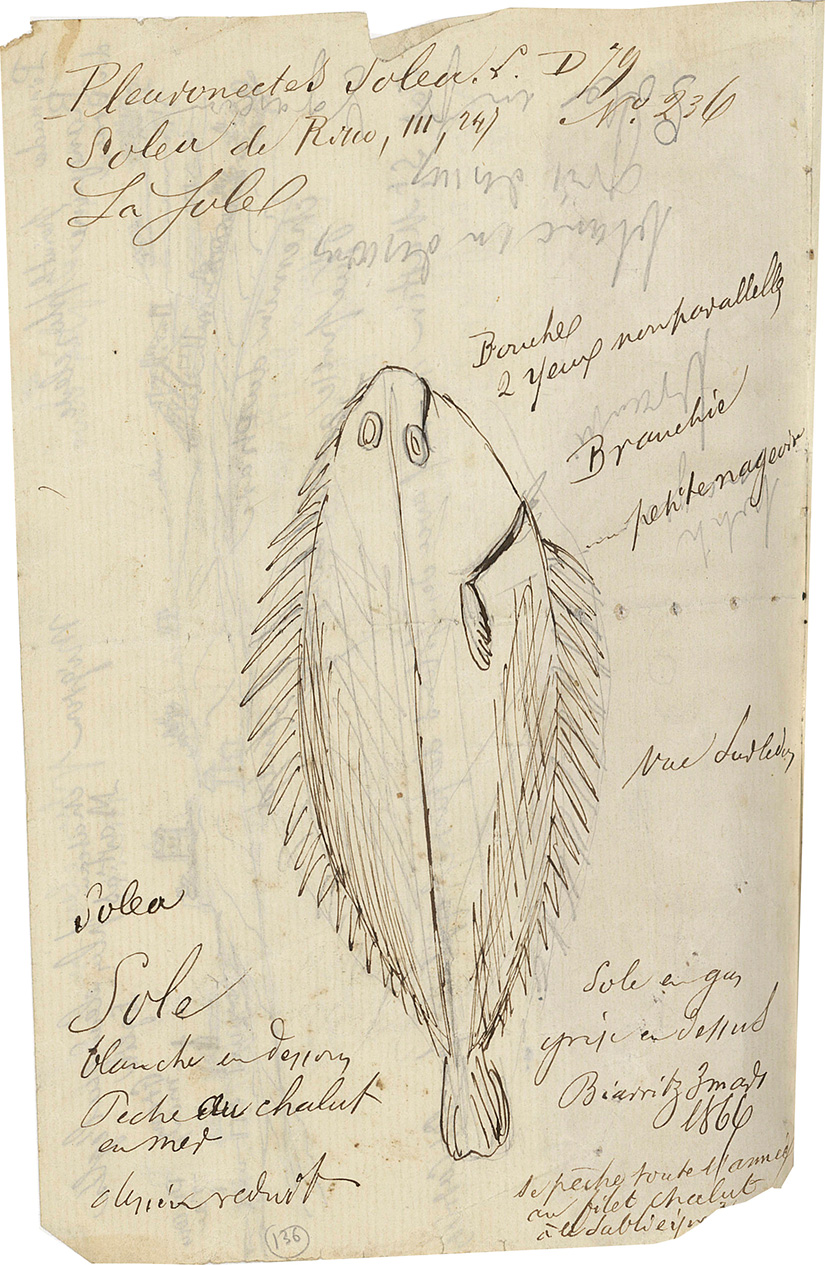 Pleuronectes Solea. L. D 79
N° 236
Solea de Risso, III, 247
La Sole
Bouche
2 yeux non parallelle
Branchie
petite nageoire
Vue Sur le dos
Solea
Sole
blanche en dessous
Peche au chalut
en mer
dessin reduit
Sole en gas
grise en dessus
Biarritz 3 mars
1866
se pêche toute l'année
au filet chalut
à la
136